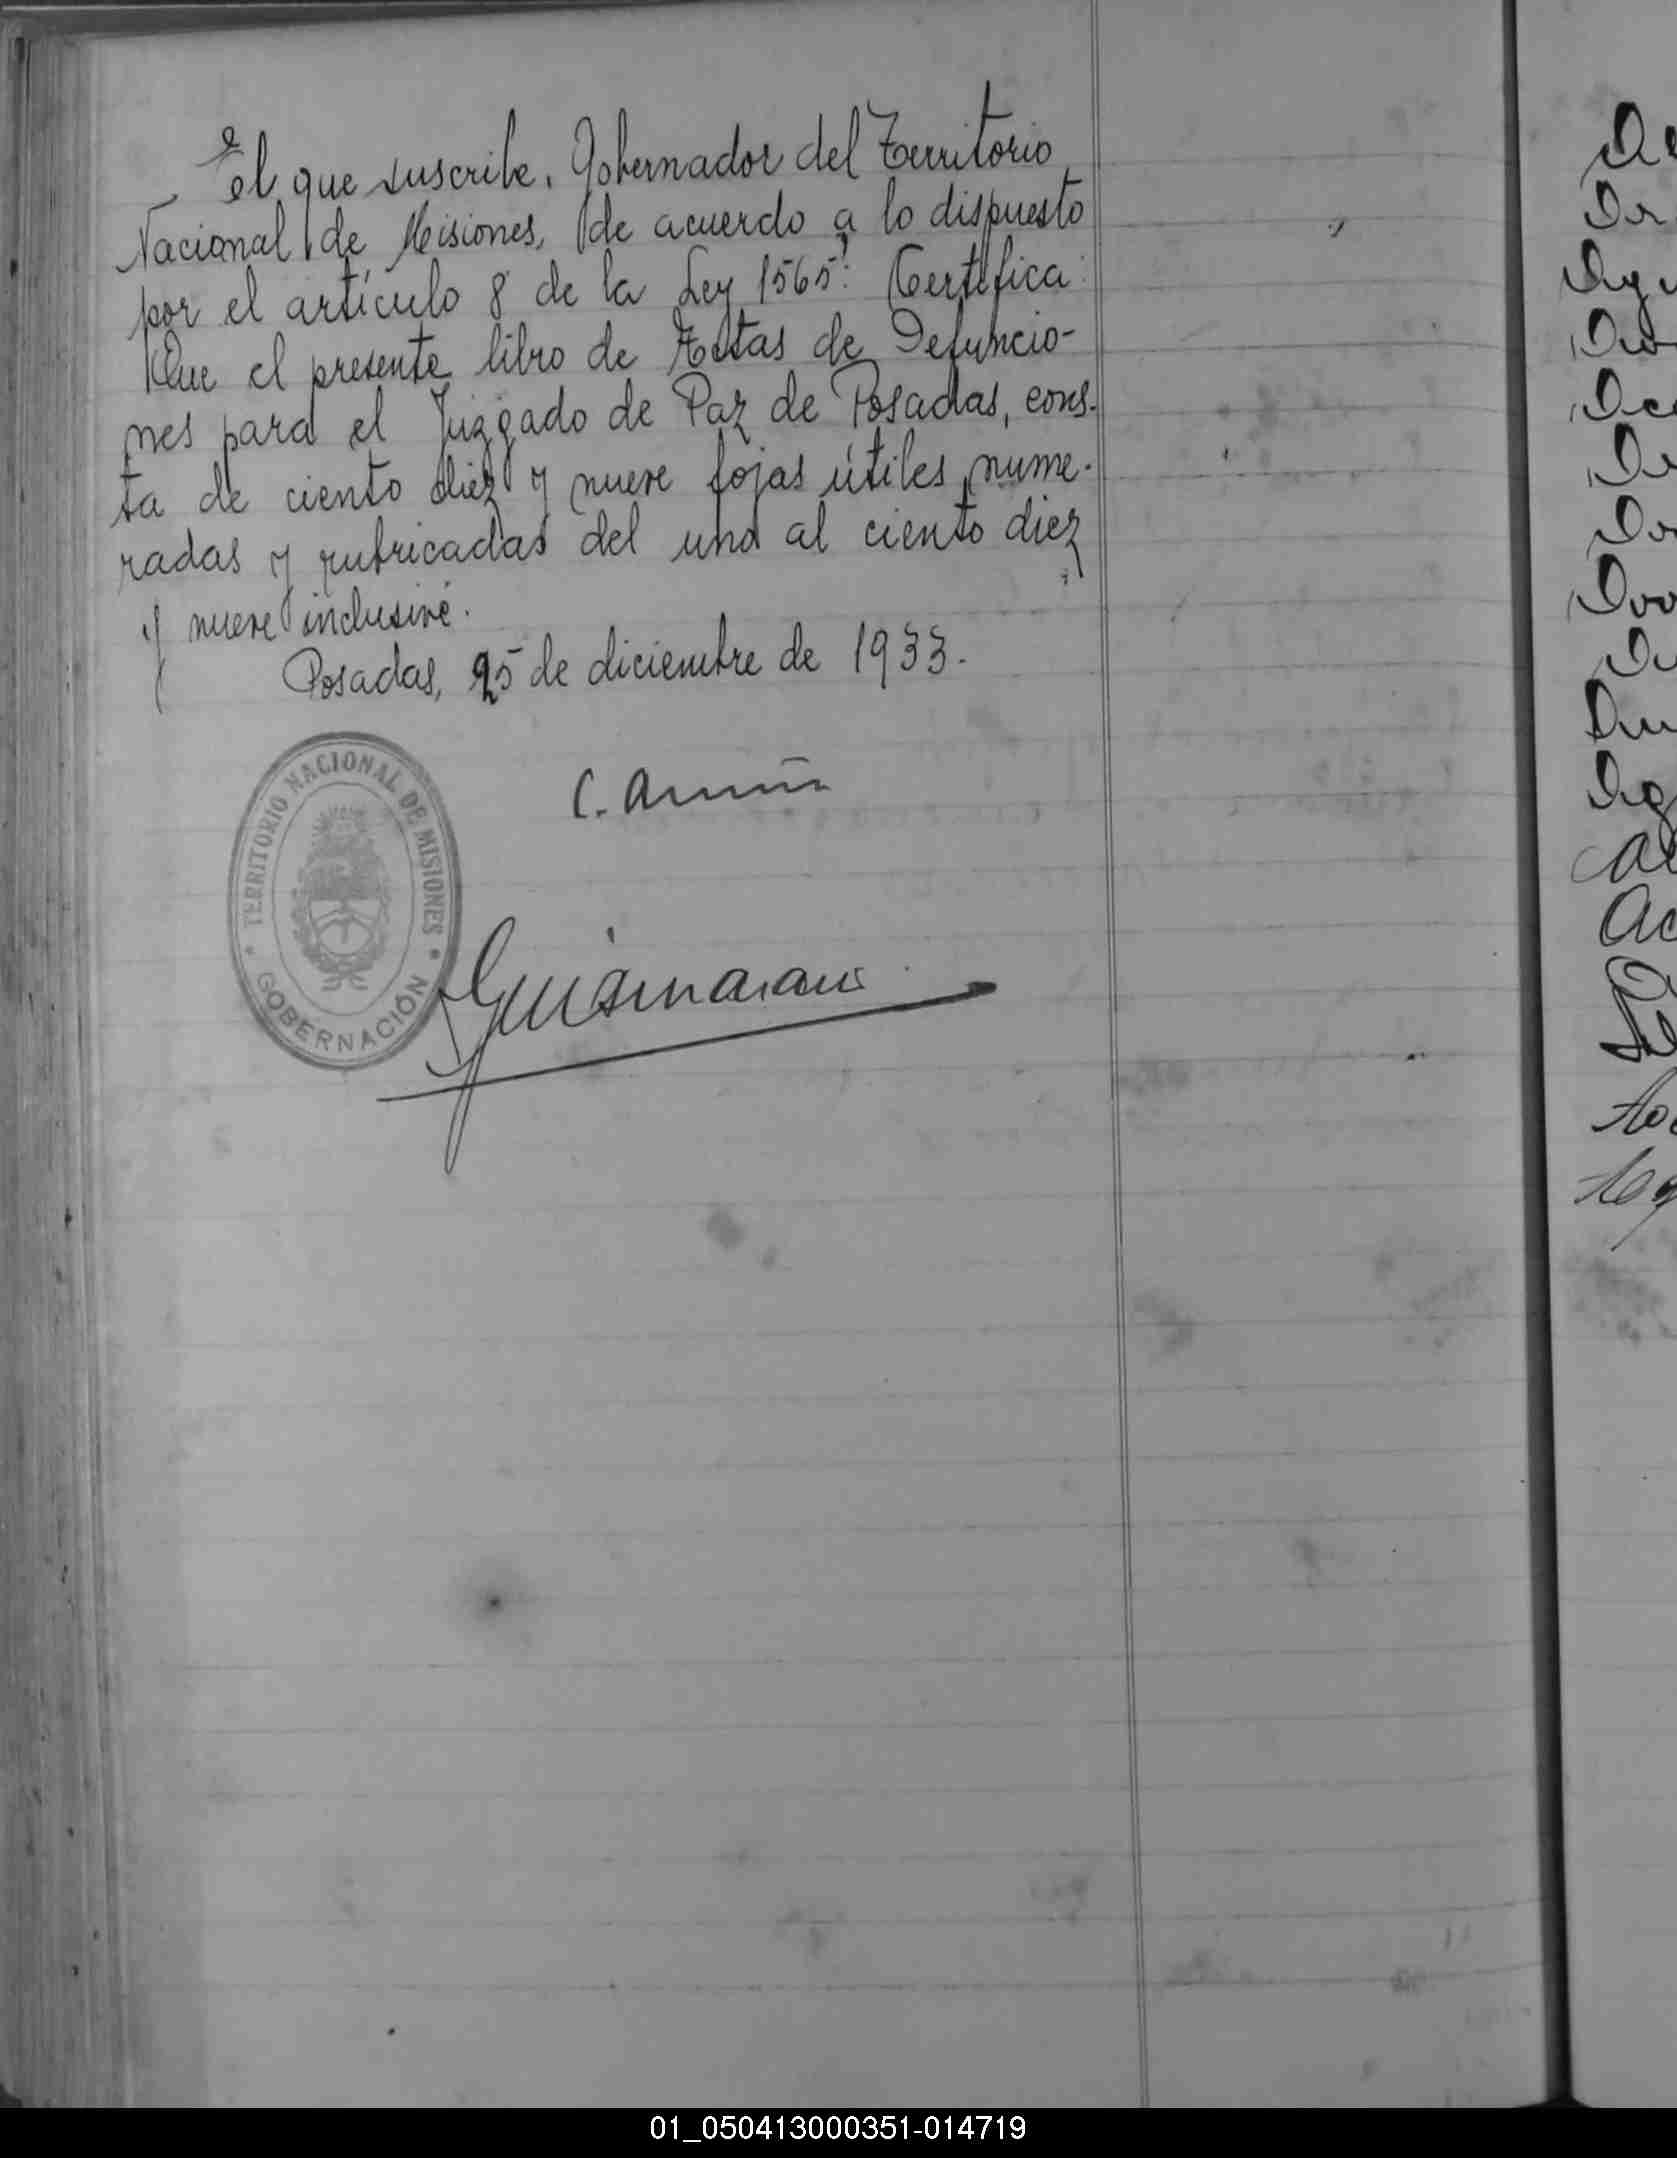 El que suscribe, Gobernador del Territorio
Nacional de Misiones, de acuerdo a lo dispuesto
por el artículo 8 de la Ley 1565: Certifica:
Que el presente libro de Actas de Defuncio-
nes para el Juzgado de Paz de Posadas, cons-
ta de ciento diez y nueve fojas útiles, nume-
radas y rubricadas del uno al ciento diez
y nueve inclusive.
Posadas, 25 de diciembre de 1933.
C. Acuña
TERRITORIO NACIONAL DE MISIONES
GOBERNACIÓN
01_050413000351-014719